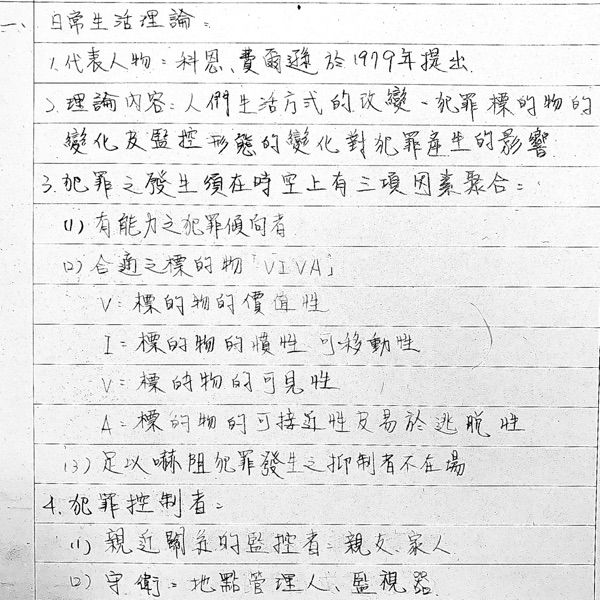 一、日常生活理論：
1.代表人物：科恩、費爾遜於1979年提出.
2.理論內容：人們生活方式的改變、犯罪標的物的
變化及監控形態的變化對犯罪產生的影響
3.犯罪之發生須在時空上有三項因素聚合：
(1)有能力之犯罪傾向者
(2)合適之標的物「VIVA」
V：標的物的價值性
I：標的物的慣性 可移動性
V：標的物的可見性
A：標的物的可接近性及易於逃脫性
(3)足以嚇阻犯罪發生之抑制者不在場
4.犯罪控制者：
(1)親近關係的監控者：親友、家人
(2)守衛：地點管理人、監視器